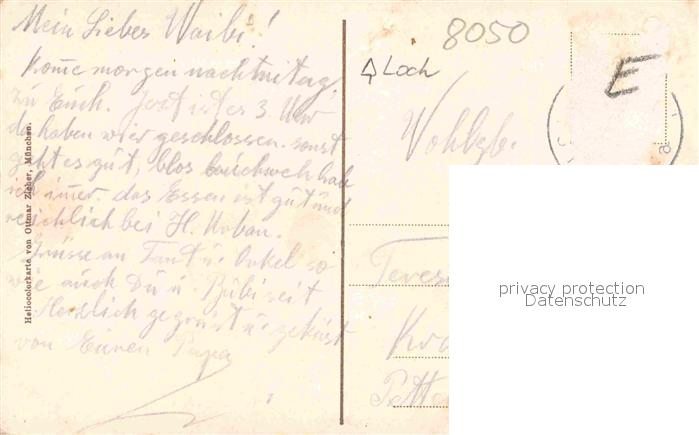 Mein Liebes Waibi!
Kom̅e morgen nachmitag
zu Euch. Jezt ist es 3. Uhr
da haben wier geschlossen. sonst
geht es gut, blos bauchweh hab
ich im̅er. das Essen ist gut und
reichlich bei H. Urban.
Grüsse an Tant u. Onkel so
wie auch Du u. Bubi seit
Herzlich gegrüst u. geküst
von Euren Papa
Heliocolorkarte von Ottmar Zieher, München.
8050
Loch
E
Wohlgb.
privacy protection
Datenschutz